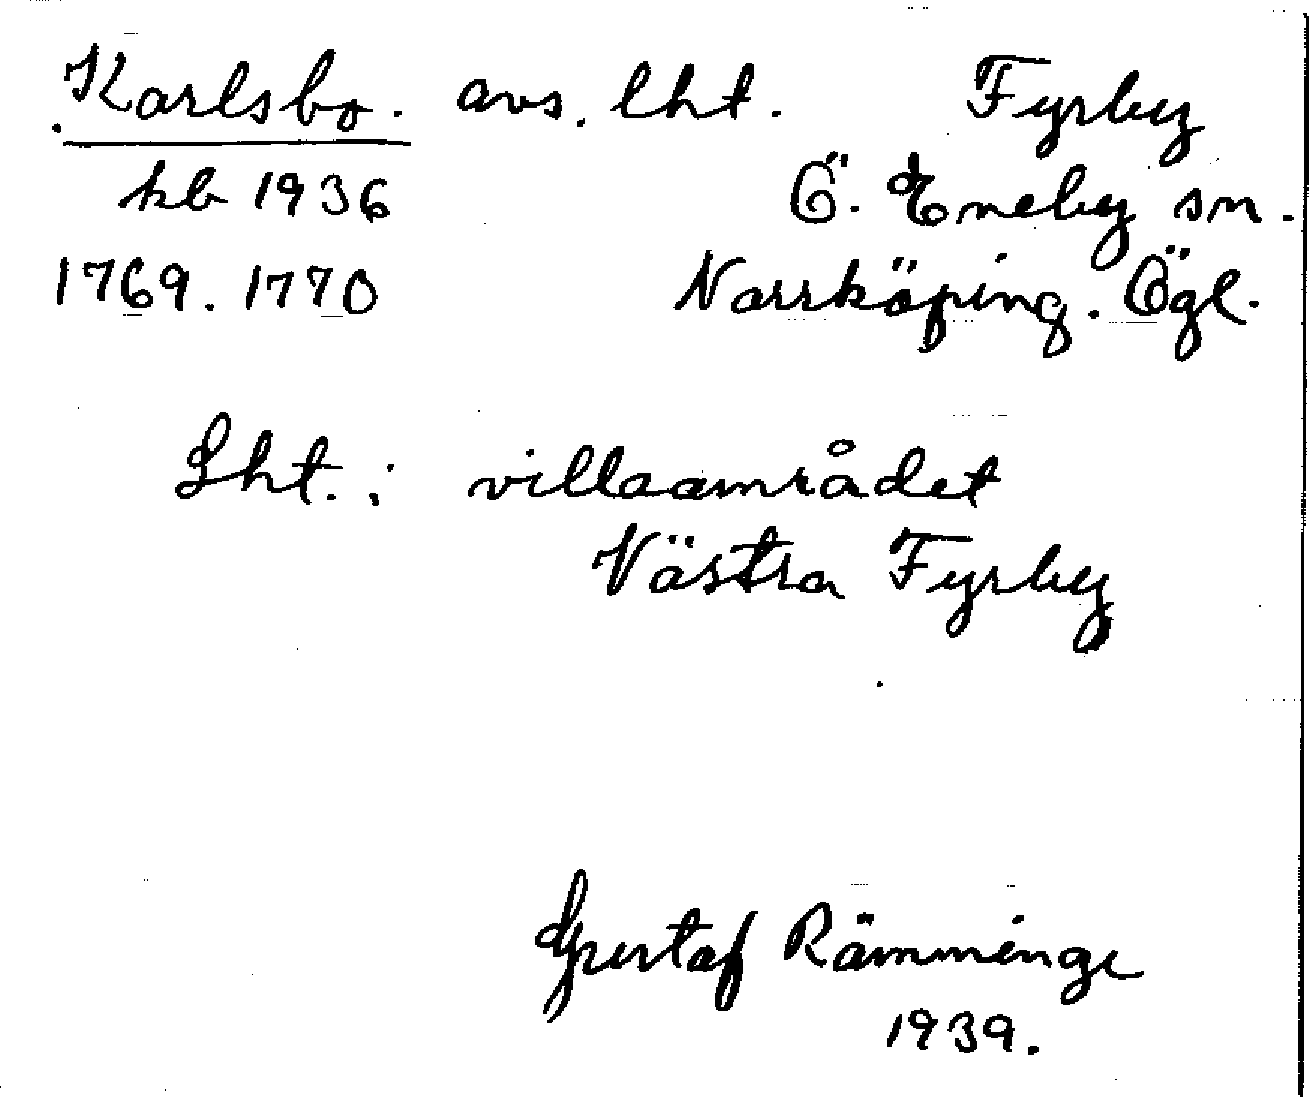 Karlsbo. avs. lht. Fyrby
kb 1936 Ö. Eneby sn.
1769. 1770 Norrköping. Ögl.
Lht.: villaområdet
Västra Fyrby
Gustaf Rämminge
1939.